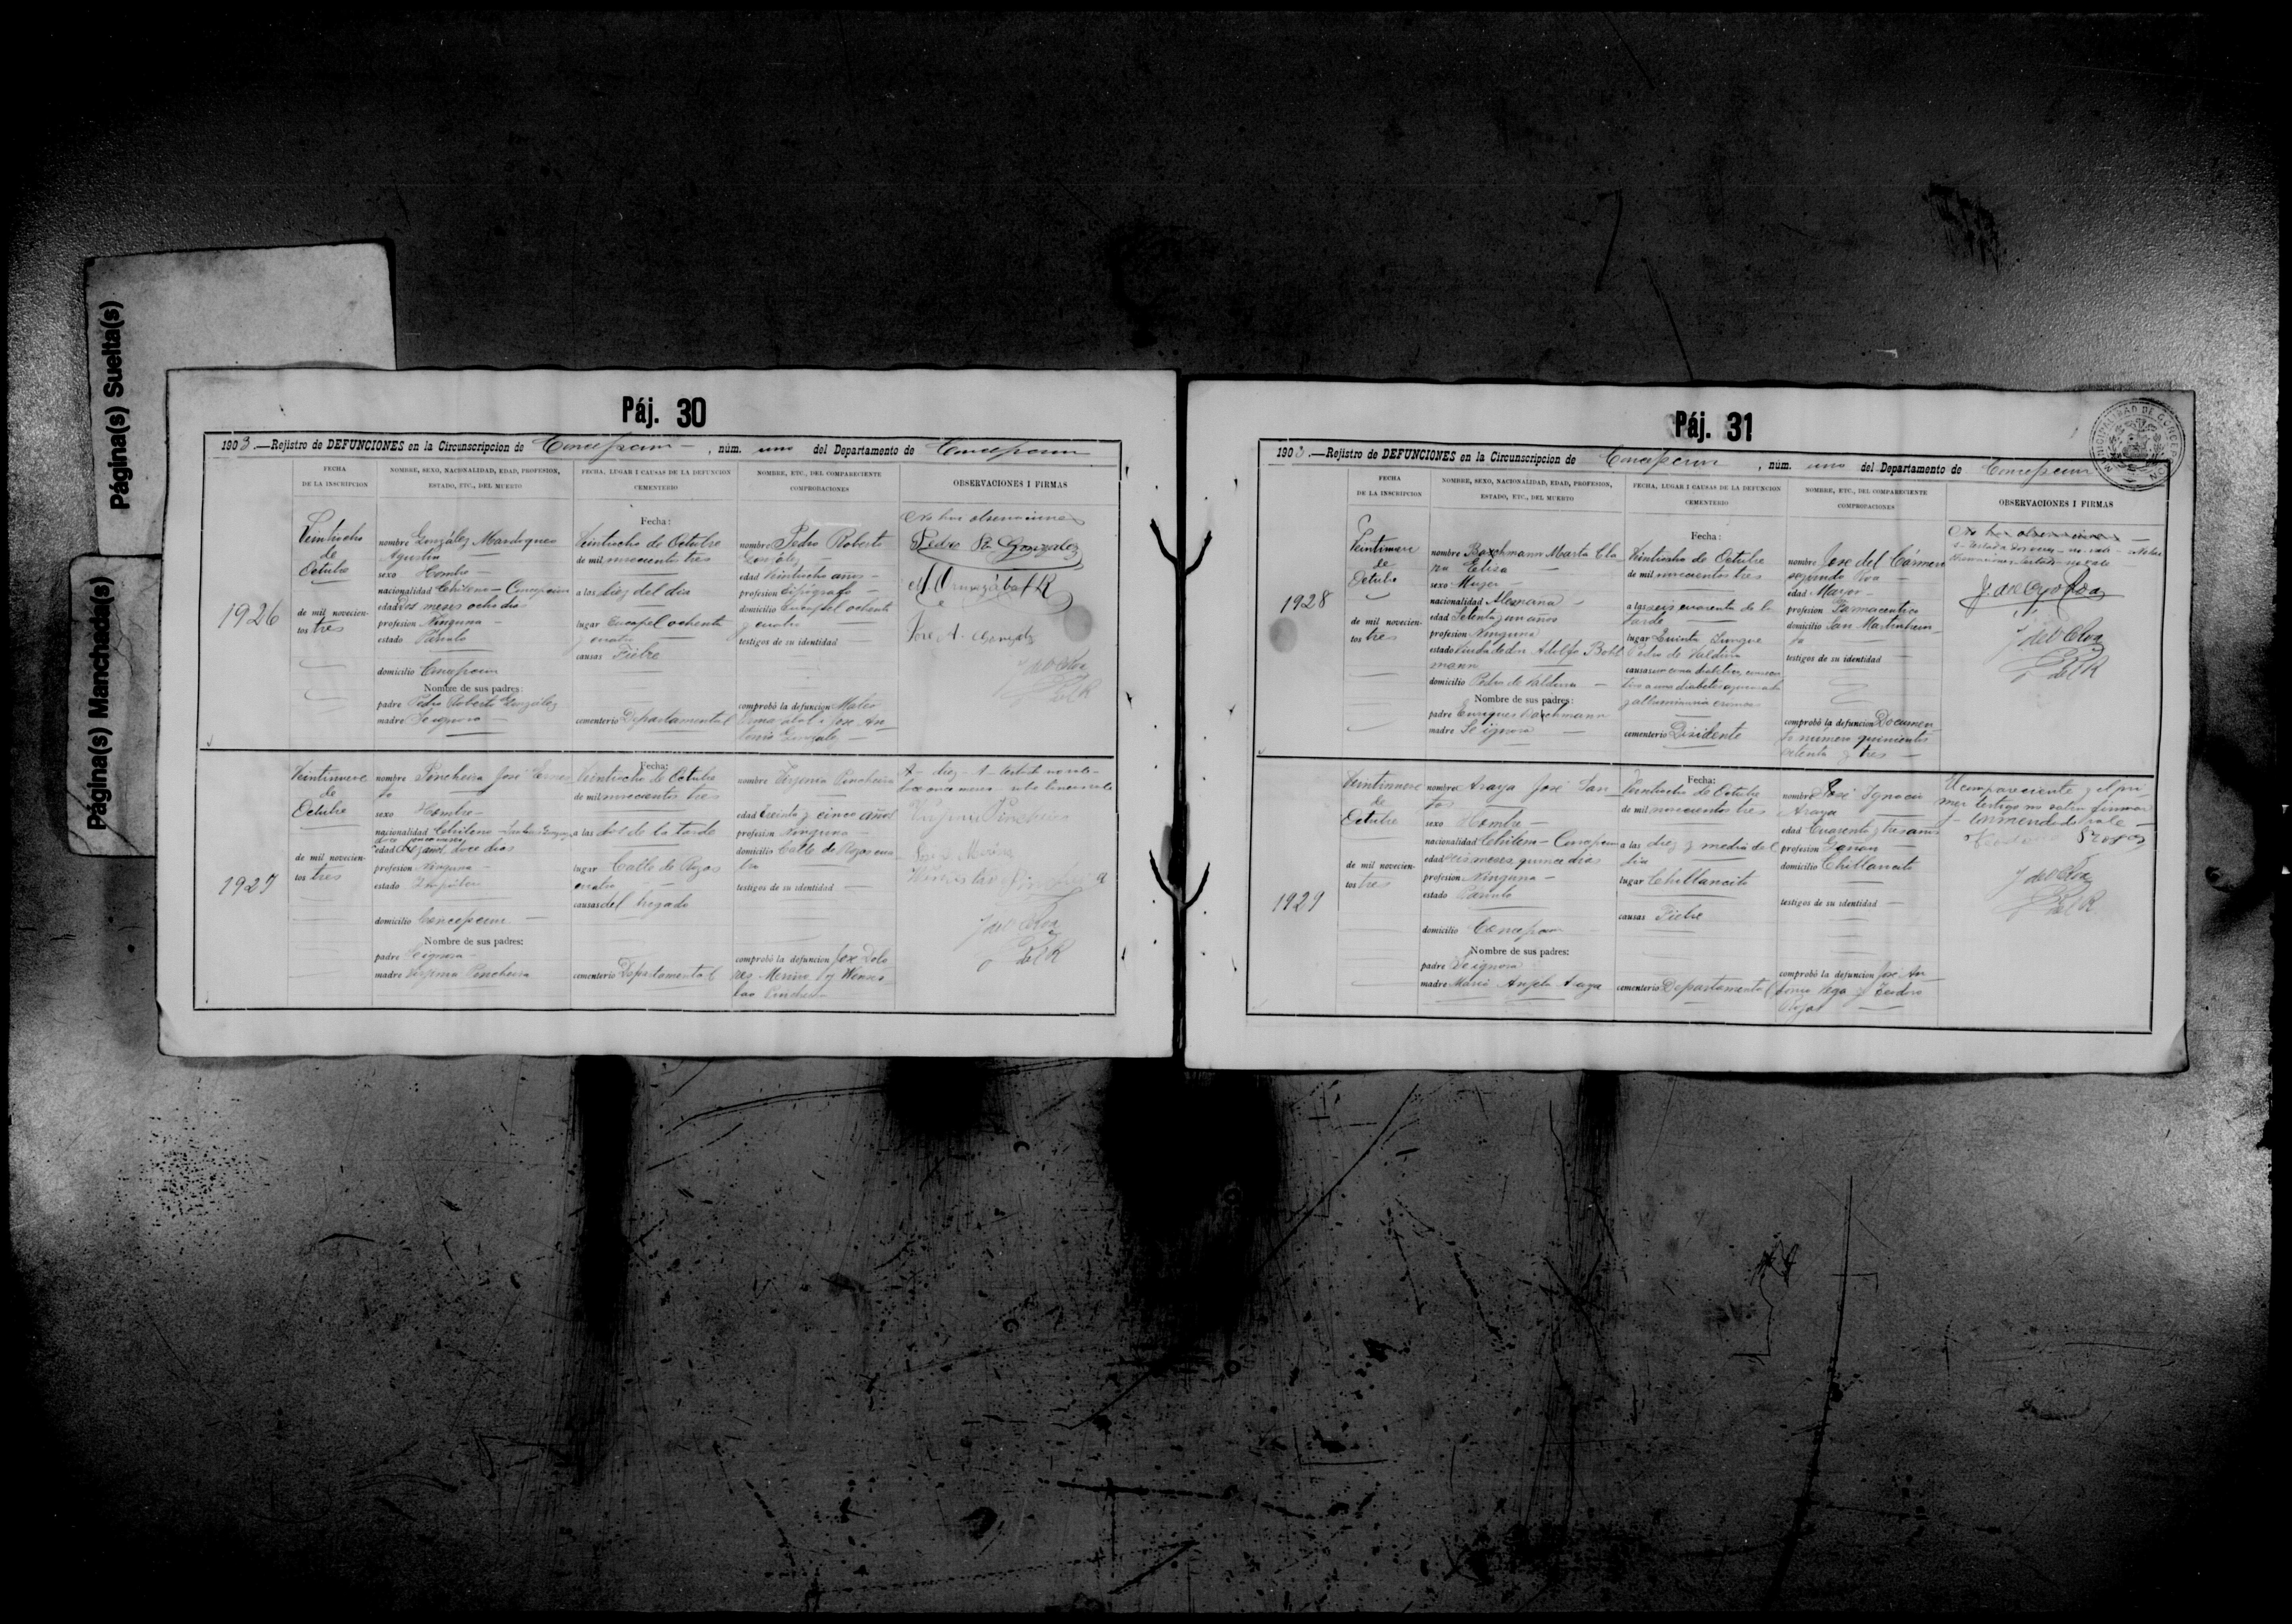 Página(s) Suelta(s)
Página(s) Manchada(s)
Páj. 30
1903.—Rejistro de DEFUNCIONES en la Circunscripcion de Concepcion, núm. uno del Departamento de Concepcion
FECHA
DE LA INSCRIPCION
NOMBRE, SEXO, NACIONALIDAD, EDAD, PROFESION,
ESTADO, ETC., DEL MUERTO
FECHA, LUGAR I CAUSAS DE LA DEFUNCION
CEMENTERIO
NOMBRE, ETC., DEL COMPARECIENTE
COMPROBACIONES
OBSERVACIONES I FIRMAS
1926
Veintiocho
de
Octubre
de mil novecien-
tos tres
nombre González Mardoqueo
Agustin
sexo Hombre
nacionalidad Chileno - Concepcion
edad Dos meses ocho dias
profesion Ninguna
estado Párvulo
domicilio Concepcion
Nombre de sus padres:
padre Pedro Roberto González
madre Se ignora
Fecha:
Veintiocho de Octubre
de mil novecientos tres
a las diez del dia
lugar Caupel ochenta
y cuatro
causas Fiebre
cementerio Departamental
nombre Pedro Roberto
González
edad Veintiocho años
profesion Tipógrafo
domicilio ochenta
y cuatro
testigos de su identidad
comprobó la defuncion Mateo
José An-
tonio González
No hai observaciones
Pedro R. Gonzalez
José A. Gonzalez
1927
Veintinueve
de
Octubre
de mil novecien-
tos tres
nombre Pincheira José Ernes
to
sexo Hombre
nacionalidad Chileno
edad doce dias
profesion Ninguna
estado Impúber
domicilio Concepcion
Nombre de sus padres:
padre Se ignora
madre Virginia Pincheira
Fecha:
Veintiocho de Octubre
de mil novecientos tres
a las dos de la tarde
lugar Calle de Rozas
cuatro
causas del hígado
cementerio Departamental
nombre Virginia Pincheira
edad Treinta y cinco años
profesion Ninguna
domicilio Calle de Rozas cua
tro
testigos de su identidad
comprobó la defuncion José Dolo
res Merino y Wences
lao Pincheira
Virginia Pincheira
Páj. 31
MUNICIPALIDAD DE CONCEPCION
1903.—Rejistro de DEFUNCIONES en la Circunscripcion de Concepcion, núm. uno del Departamento de Concepcion
FECHA
DE LA INSCRIPCION
NOMBRE, SEXO, NACIONALIDAD, EDAD, PROFESION,
ESTADO, ETC., DEL MUERTO
FECHA, LUGAR I CAUSAS DE LA DEFUNCION
CEMENTERIO
NOMBRE, ETC., DEL COMPARECIENTE
COMPROBACIONES
OBSERVACIONES I FIRMAS
1928
Veintinueve
de
Octubre
de mil novecien-
tos tres
nombre Bachmann Marta Cla
ra Elisa
sexo Mujer
nacionalidad Alemana
edad Setenta y un años
profesion Ninguna
estado Viuda de don Adolfo Bohl
mann
domicilio Pedro de Valdivia
Nombre de sus padres:
padre Enrique Bachmann
madre Se ignora
Fecha:
Veintiocho de Octubre
de mil novecientos tres
a las seis cuarenta de la
tarde
lugar Quinta Junge
Pedro de Valdivia
causas
cementerio Disidente
nombre José del Cármen
segundo Roa
edad Mayor
profesion Farmaceutico
domicilio San Martin
testigos de su identidad
comprobó la defuncion Documen
to número quinientos
ochenta y tres
No hai observaciones
1929
Veintinueve
de
Octubre
de mil novecien-
tos tres
nombre Araya José San
tos
sexo Hombre
nacionalidad Chileno - Concepcion
edad seis meses quince dias
profesion Ninguna
estado Párvulo
domicilio Concepcion
Nombre de sus padres:
padre Se ignora
madre Maria Anjela Araya
Fecha:
Veintiocho de Octubre
de mil novecientos tres
a las diez y media del
dia
lugar Chillancito
causas Fiebre
cementerio Departamental
nombre José Ignacio
Araya
edad Cuarenta y tres años
profesion Gañan
domicilio Chillancito
testigos de su identidad
comprobó la defuncion José An
tonio Vega y Teodoro
Rojas
El compareciente y el pri
mer testigo no saben firmar
enmendado vale